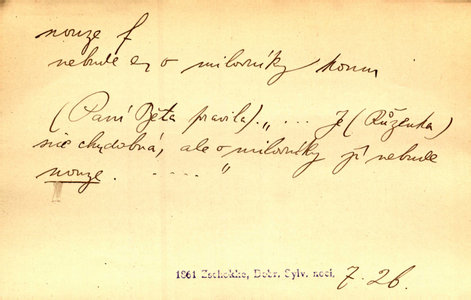 nouze f
nebude o milovníky komu
(Paní Běta pravila) „ ... Je (Růženka)
sic chudobná, ale o milovníky jí nebude
nouze . - - - - "
1861 Zschokke, Dobr. Sylv. noci, 7. 26.